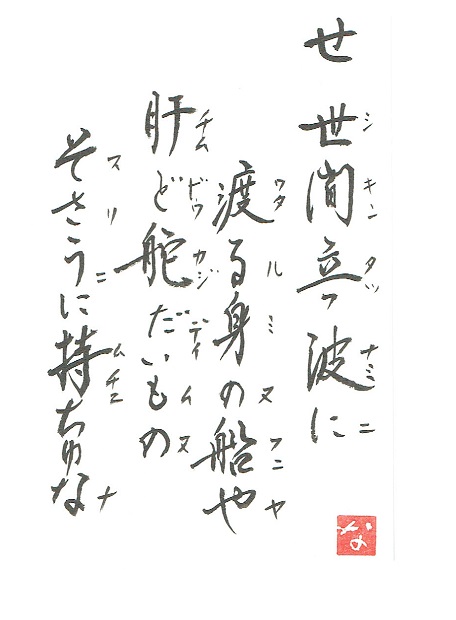 せ 世間立つ波に
シキンタツナミニ
渡る身の船や
ワタルミヌフニヤ
肝ど舵だいもの
チムドゥカジデイイヌ
そさうに持ちゆな
スリニムチユナ
な